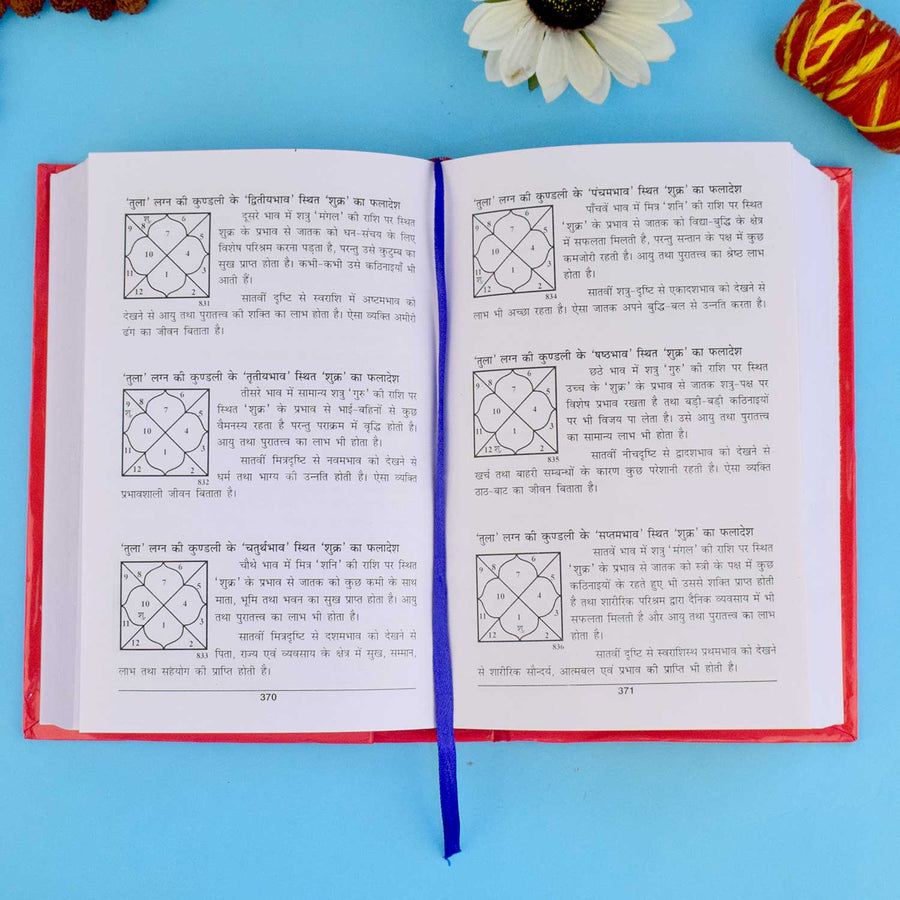 'तुला' लग्न की कुण्डली के 'द्वितीयभाव' स्थित 'शुक्र' का फलादेश
दूसरे भाव में शत्रु 'मंगल' की राशि पर स्थित
शुक्र के प्रभाव से जातक को धन-संचय के लिए
विशेष परिश्रम करना पड़ता है, परन्तु उसे कुटुम्ब का
सुख प्राप्त होता है। कभी-कभी उसे कठिनाइयाँ भी
आती हैं।
शु.
6
9
8
7
5
10
4
11
1
3
12
2
831
सातवीं दृष्टि से स्वराशि में अष्टमभाव को
देखने से आयु तथा पुरातत्त्व की शक्ति का लाभ होता है। ऐसा व्यक्ति अमीरी
ढंग का जीवन बिताता है।
'तुला' लग्न की कुण्डली के 'तृतीयभाव' स्थित 'शुक्र' का फलादेश
तीसरे भाव में सामान्य शत्रु 'गुरु' की राशि पर
स्थित 'शुक्र' के प्रभाव से भाई-बहिनों से कुछ
वैमनस्य रहता है परन्तु पराक्रम में वृद्धि होती है।
आयु तथा पुरातत्त्व का लाभ भी होता है।
6
9
8
शु.
7
5
10
4
11
1
3
12
2
832
सातवीं मित्रदृष्टि से नवमभाव को देखने से
धर्म तथा भाग्य की उन्नति होती है। ऐसा व्यक्ति
प्रभावशाली जीवन बिताता है।
'तुला' लग्न की कुण्डली के 'चतुर्थभाव' स्थित 'शुक्र' का फलादेश
चौथे भाव में मित्र 'शनि' की राशि पर स्थित
'शुक्र' के प्रभाव से जातक को कुछ कमी के साथ
माता, भूमि तथा भवन का सुख प्राप्त होता है। आयु
तथा पुरातत्त्व का लाभ भी होता है।
6
9
8
7
5
10
4
शु.
11
1
3
12
2
833
सातवीं मित्रदृष्टि से दशमभाव को देखने से
पिता, राज्य एवं व्यवसाय के क्षेत्र में सुख, सम्मान,
लाभ तथा सहयोग की प्राप्ति होती है।
370
'तुला' लग्न की कुण्डली के 'पंचमभाव' स्थित 'शुक्र' का फलादेश
पाँचवें भाव में मित्र 'शनि' की राशि पर स्थित
'शुक्र' के प्रभाव से जातक को विद्या-बुद्धि के क्षेत्र
में सफलता मिलती है, परन्तु सन्तान के पक्ष में कुछ
कमजोरी रहती है। आयु तथा पुरातत्त्व का श्रेष्ठ लाभ
होता है।
6
9
8
7
5
10
4
11
शु.
1
3
12
2
834
सातवीं शत्रु-दृष्टि से एकादशभाव को देखने से
लाभ भी अच्छा रहता है। ऐसा जातक अपने बुद्धि-बल से उन्नति करता है।
'तुला' लग्न की कुण्डली के 'षष्ठभाव' स्थित 'शुक्र' का फलादेश
छठे भाव में शत्रु 'गुरु' की राशि पर स्थित
उच्च के 'शुक्र' के प्रभाव से जातक शत्रु-पक्ष पर
विशेष प्रभाव रखता है तथा बड़ी-बड़ी कठिनाइयों
पर भी विजय पा लेता है। उसे आयु तथा पुरातत्त्व
का सामान्य लाभ भी होता है।
6
9
8
7
5
10
4
11
1
3
12 शु.
2
835
सातवीं नीचदृष्टि से द्वादशभाव को देखने से
खर्च तथा बाहरी सम्बन्धों के कारण कुछ परेशानी रहती है। ऐसा व्यक्ति
ठाठ-बाट का जीवन बिताता है।
'तुला' लग्न की कुण्डली के 'सप्तमभाव' स्थित 'शुक्र' का फलादेश
सातवें भाव में शत्रु 'मंगल' की राशि पर स्थित
'शुक्र' के प्रभाव से जातक को स्त्री के पक्ष में कुछ
कठिनाइयों के रहते हुए भी उससे शक्ति प्राप्त होती
है तथा शारीरिक परिश्रम द्वारा दैनिक व्यवसाय में भी
सफलता मिलती है और आयु तथा पुरातत्त्व का लाभ
होता है।
6
9
8
7
5
10
4
11
1
शु.
3
12
2
836
सातवीं दृष्टि से स्वराशिस्थ प्रथमभाव को देखने
से शारीरिक सौन्दर्य, आत्मबल एवं प्रभाव की प्राप्ति भी होती है।
371